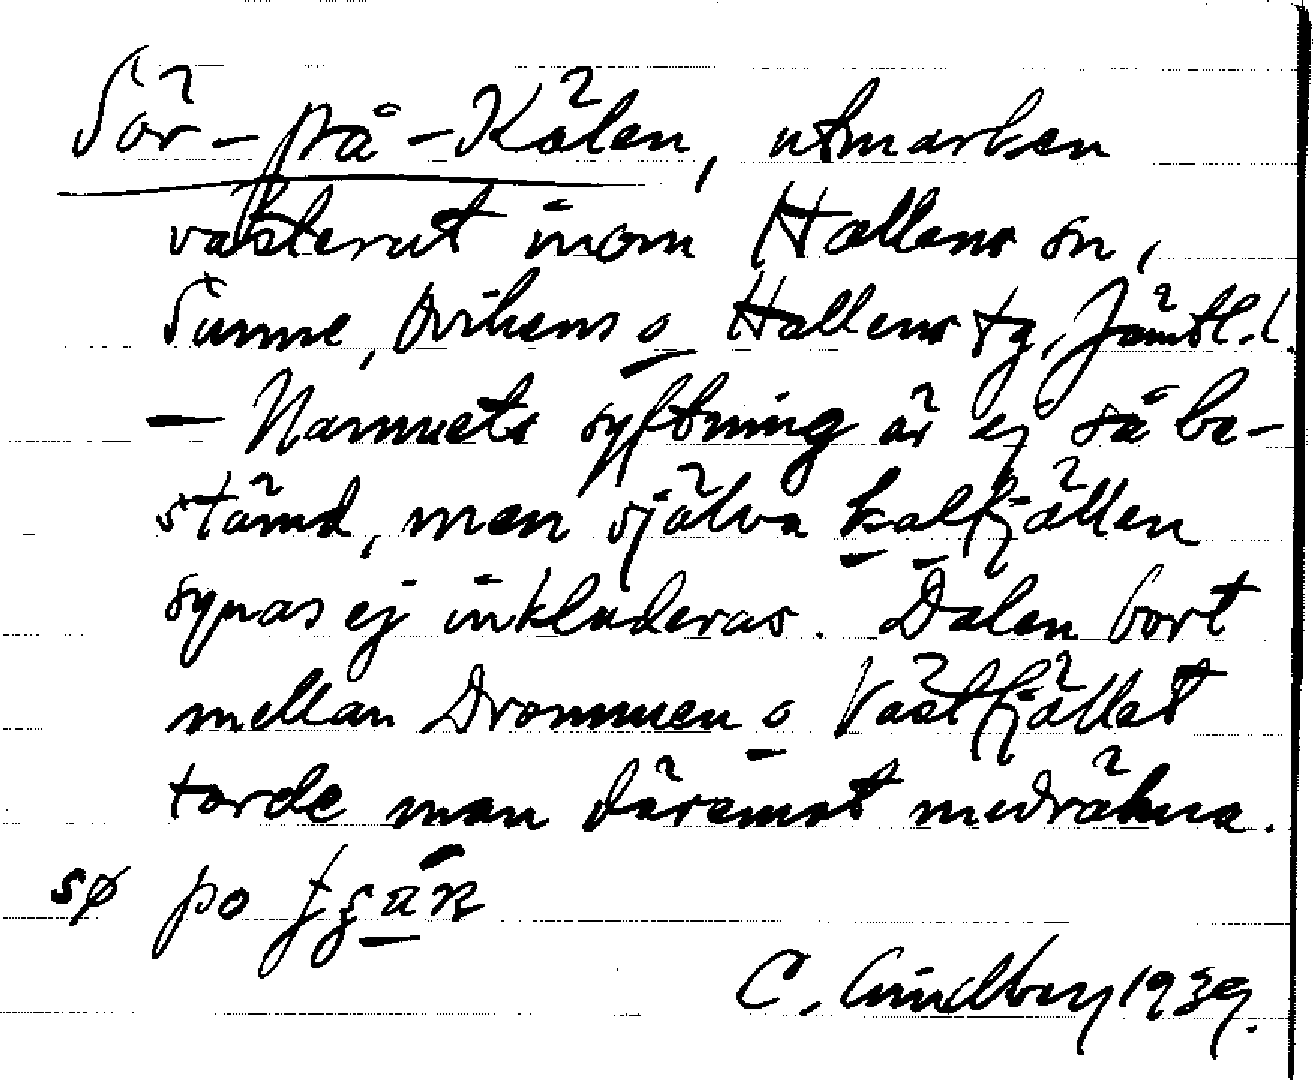 Sör-på-Kölen, utmarken
västerut inom Hallens sn,
Sunne, Ovikens o Hallens tg, Jämtl. l.
— Namnets syftning är ej så be-
stämd, men själva kalfjällen
synas ej inkluderas. Dalen bort
mellan Drommen o Västfjället
torde man däremot medräkna.
sø po
C. Lindberg 1939.